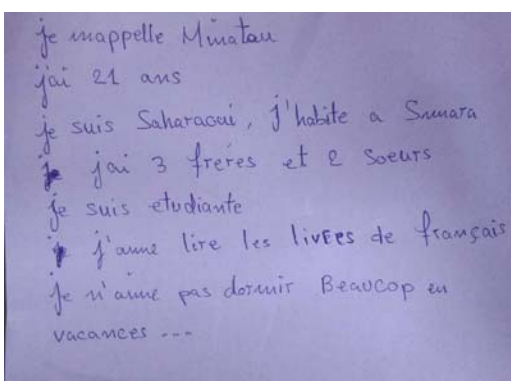 je mappelle Minatou
jai 21 ans
je suis Saharaoui, j'habite a Smara
jai 3 freres et 2 soeurs
je suis etudiante
j'aime lire les livres de français
je n'aime pas dormir Beaucop en
vacances ---